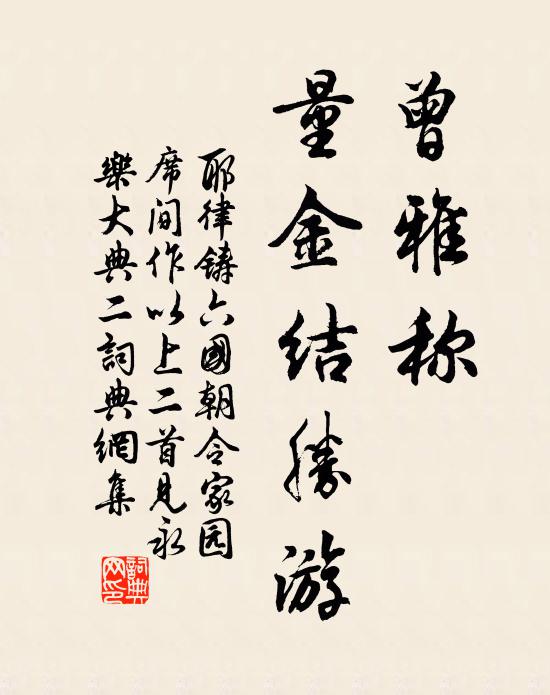 曾雅称
量金结胜游
耶律铸六國朝令家园
席间作以上二首见永
樂大典二詞典網集
詞典網印